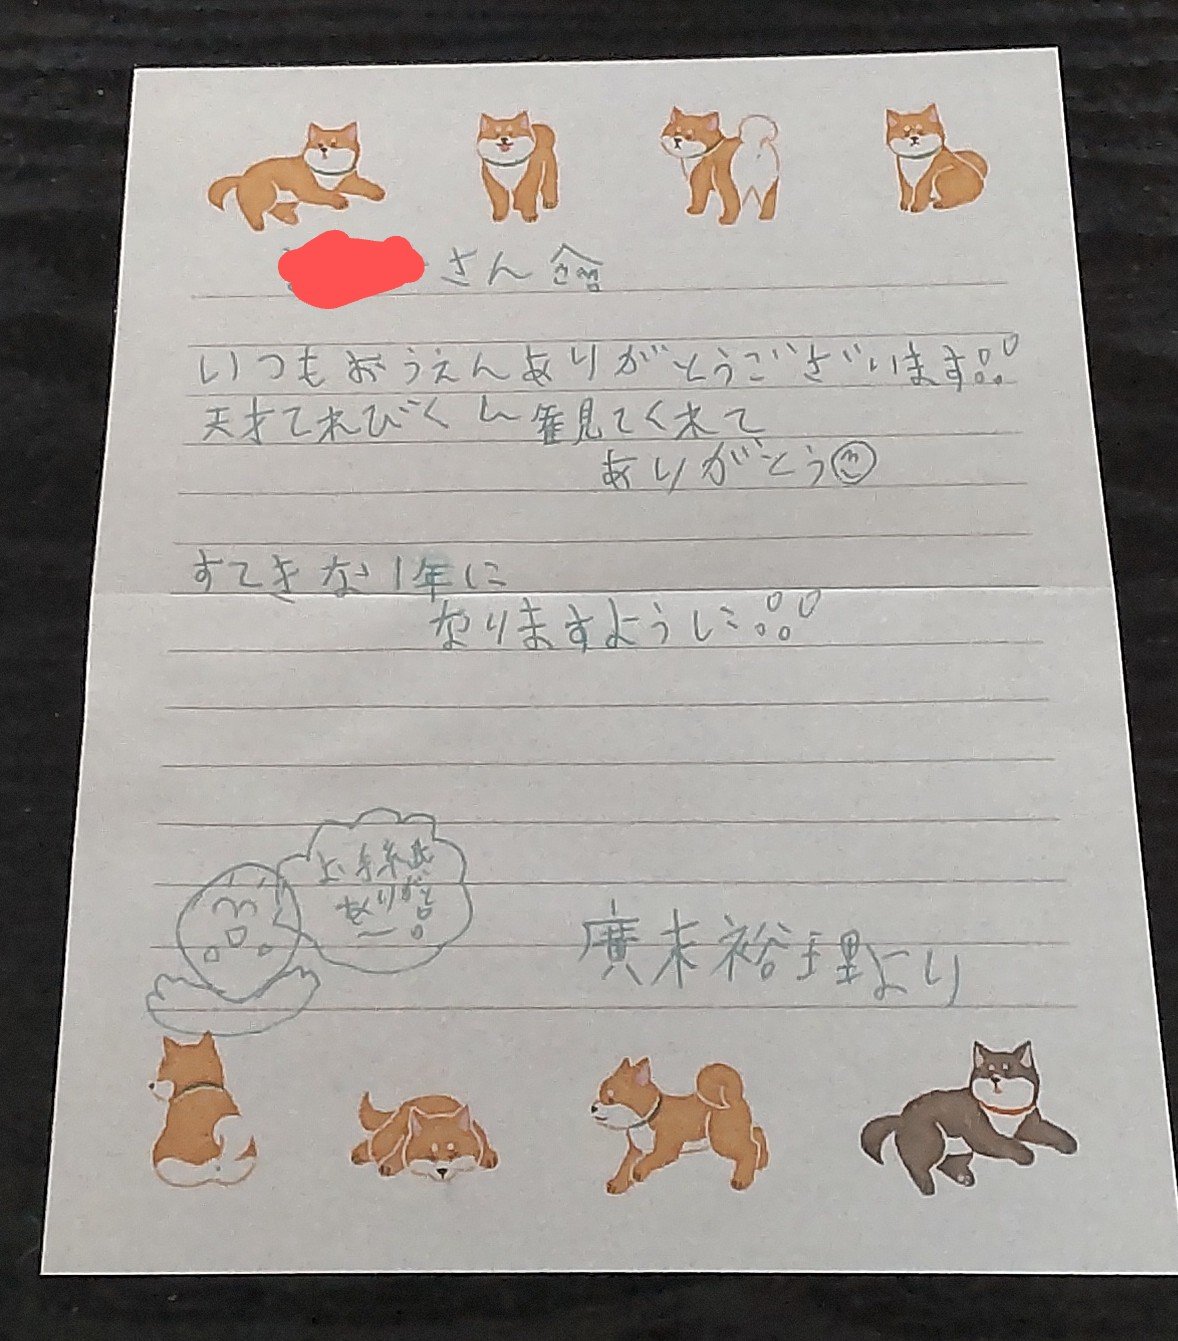 さん
いつもおうえんありがとうございます!!
天才てれびくん見てくれて
ありがとう
すてきな1年に
なりますように!!
お手紙
ありがと
〜!
廣末裕理より